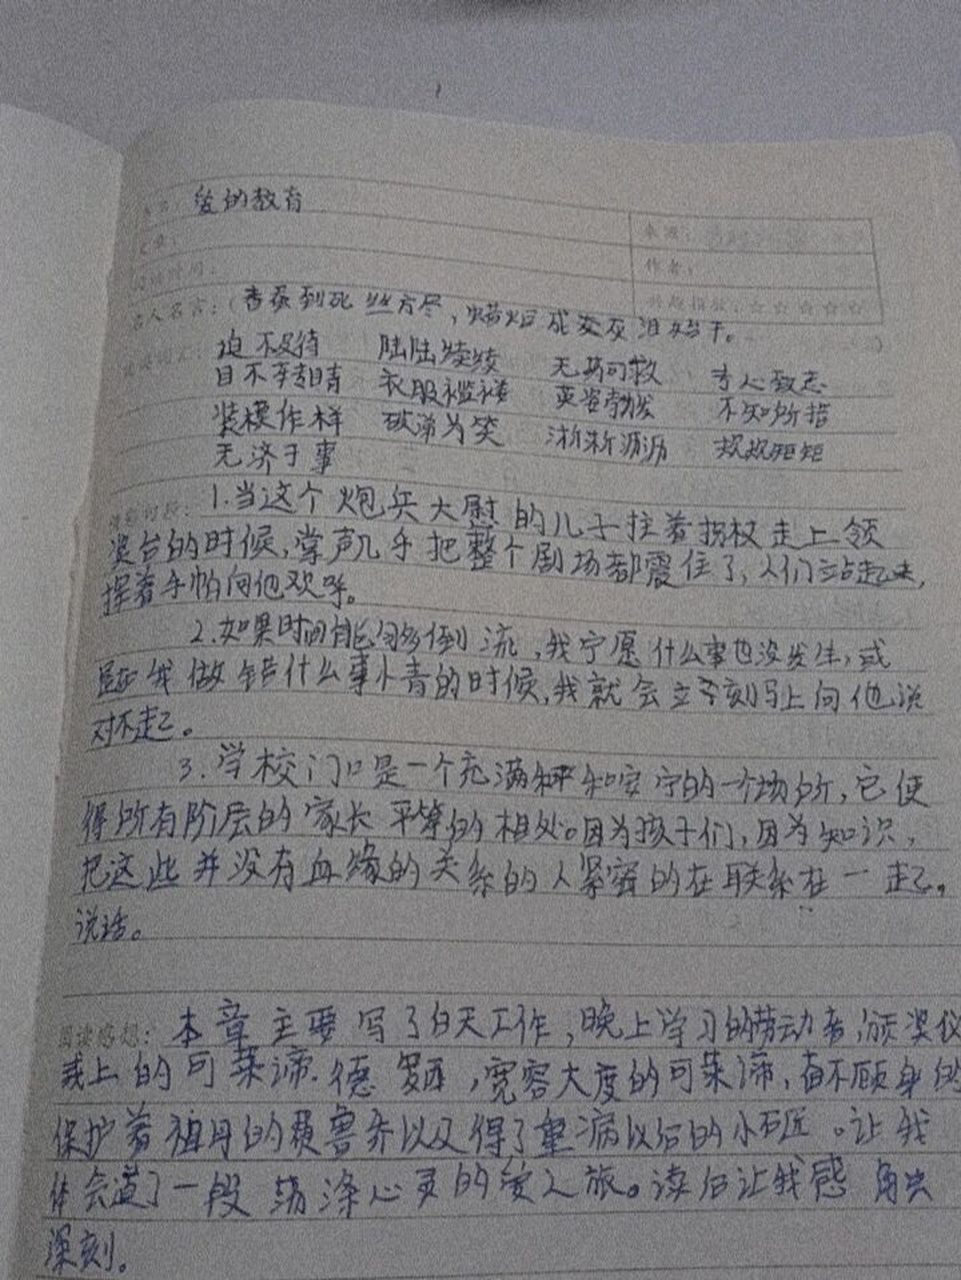 爱的教育
来源：
作者：
名人名言：（春蚕到死丝方尽，蜡炬成灰泪始干。
迫不及待 陆陆续续 无药可救 专心致志
目不转睛 衣服褴褛 英姿勃发 不知所措
装模作样 破涕为笑 淅淅沥沥 规规矩矩
无济于事
1.当这个炮兵大尉的儿子拄着拐杖走上领
奖台的时候，掌声几乎把整个剧场都震住了，人们站起来，
挥着手帕向他欢呼。
2.如果时间能够倒流，我宁愿什么事也没发生，或
我做错什么事小青的时候，我就会立即刻马上向他说
对不起。
3.学校门口是一个充满和平和安宁的一个场所，它使
得所有阶层的家长平等的相处。因为孩子们，因为知识，
把这些并没有血缘的关系的人紧密的在联系在一起。
说话。
阅读感想：本章主要写了白天工作，晚上学习的劳动者，颁奖仪
式上的可莱谛.德罗西，宽容大度的可莱谛，奋不顾身的
保护着祖母的费鲁乔以及得了重病以后的小石匠。让我
体会道了一段荡涤心灵的爱之旅。读后让我感触
深刻。